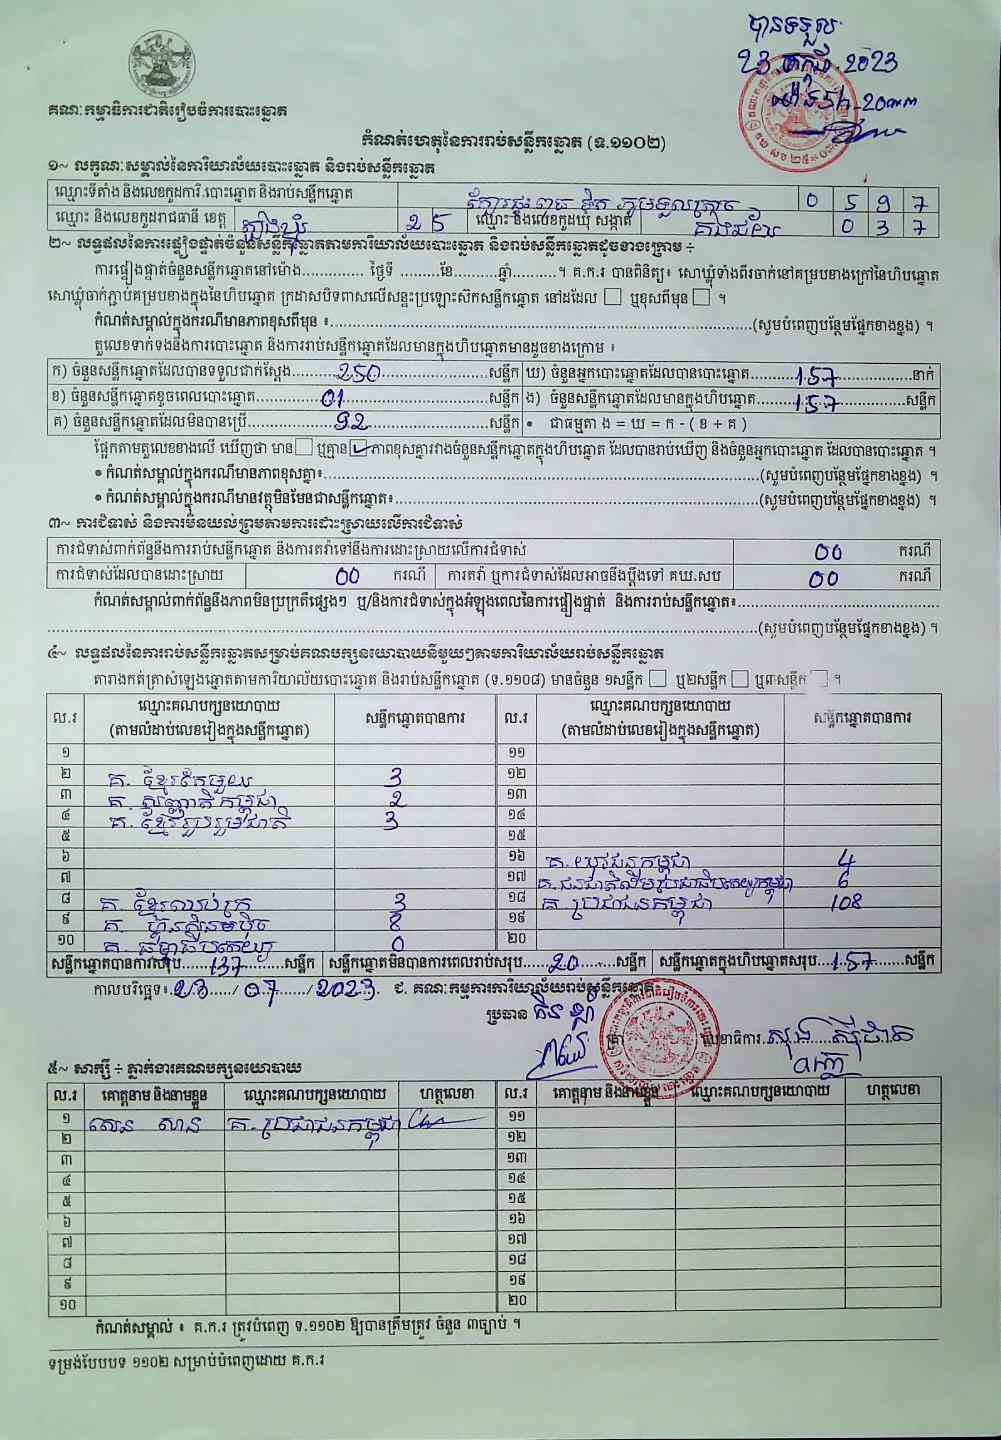 បានទទួល
23 កក្កដា 2023
ម៉ោង 5h-20
គណៈកម្មាធិការជាតិរៀបចំការបោះឆ្នោត
កំណត់ហេតុនៃការរាប់សន្លឹកឆ្នោត (ទ.១១០២)
១~ លក្ខណៈសម្គាល់នៃការិយាល័យបោះឆ្នោត និងរាប់សន្លឹកឆ្នោត
ឈ្មោះទីតាំង និងលេខកូដការិ.បោះឆ្នោត និងរាប់សន្លឹកឆ្នោត 0 5 9 7
ឈ្មោះ និងលេខកូដរាជធានី ខេត្ត ត្បូងឃ្មុំ 2 5 ឈ្មោះ និងលេខកូដឃុំ សង្កាត់ គងជ័យ 0 3 7
២~ លទ្ធផលនៃការផ្ទៀងផ្ទាត់ចំនួនសន្លឹកឆ្នោតតាមការិយាល័យបោះឆ្នោត និងរាប់សន្លឹកឆ្នោតដូចខាងក្រោម ÷
ការផ្ទៀងផ្ទាត់ចំនួនសន្លឹកឆ្នោតនៅម៉ោង.............. ថ្ងៃទី .........ខែ...........ឆ្នាំ..........។ គ.ក.រ បានពិនិត្យ៖ សោឃ្លុំទាំងពីរចាក់នៅគម្របខាងក្រៅនៃហិបឆ្នោត
សោឃ្លុំចាក់ភ្ជាប់គម្របខាងក្នុងនៃហិបឆ្នោត ក្រដាសបិទពាសលើសន្ទះប្រឡោះស៊កសន្លឹកឆ្នោត នៅដដែល □ ឬខុសពីមុន □ ។
កំណត់សម្គាល់ក្នុងករណីមានភាពខុសពីមុន ៖...............(សូមបំពេញបន្ថែមផ្នែកខាងខ្នង) ។
តួលេខទាក់ទងនឹងការបោះឆ្នោត និងការរាប់សន្លឹកឆ្នោតដែលមានក្នុងហិបឆ្នោតមានដូចខាងក្រោម ៖
ក) ចំនួនសន្លឹកឆ្នោតដែលបានទទួលជាក់ស្តែង..........250..........សន្លឹក ឃ) ចំនួនអ្នកបោះឆ្នោតដែលបានបោះឆ្នោត..........157..........នាក់
ខ) ចំនួនសន្លឹកឆ្នោតខូចពេលបោះឆ្នោត..........01..........សន្លឹក ង) ចំនួនសន្លឹកឆ្នោតដែលមានក្នុងហិបឆ្នោត..........157..........សន្លឹក
គ) ចំនួនសន្លឹកឆ្នោតដែលមិនបានប្រើ..........92..........សន្លឹក • ជាធម្មតា ង = ឃ = ក - ( ខ + គ )
ផ្អែកតាមតួលេខខាងលើ ឃើញថា មាន □ ឬគ្មាន ☑ ភាពខុសគ្នារវាងចំនួនសន្លឹកឆ្នោតក្នុងហិបឆ្នោត ដែលបានរាប់ឃើញ និងចំនួនអ្នកបោះឆ្នោត ដែលបានបោះឆ្នោត ។
• កំណត់សម្គាល់ក្នុងករណីមានភាពខុសគ្នា៖...............(សូមបំពេញបន្ថែមផ្នែកខាងខ្នង) ។
• កំណត់សម្គាល់ក្នុងករណីមានវត្ថុមិនមែនជាសន្លឹកឆ្នោត៖...............(សូមបំពេញបន្ថែមផ្នែកខាងខ្នង) ។
៣~ ការជំទាស់ និងការមិនយល់ព្រមតាមការដោះស្រាយលើការជំទាស់
ការជំទាស់ពាក់ព័ន្ធនឹងការរាប់សន្លឹកឆ្នោត និងការតវ៉ាទៅនឹងការដោះស្រាយលើការជំទាស់ 00 ករណី
ការជំទាស់ដែលបានដោះស្រាយ 00 ករណី ការតវ៉ា ឬការជំទាស់ដែលអាចនឹងប្តឹងទៅ គឃ.សប 00 ករណី
កំណត់សម្គាល់ពាក់ព័ន្ធនឹងភាពមិនប្រក្រតីផ្សេងៗ ឬ/និងការជំទាស់ក្នុងអំឡុងពេលនៃការផ្ទៀងផ្ទាត់ និងការរាប់សន្លឹកឆ្នោត៖...............
...............(សូមបំពេញបន្ថែមផ្នែកខាងខ្នង) ។
៤~ លទ្ធផលនៃការរាប់សន្លឹកឆ្នោតសម្រាប់គណបក្សនយោបាយនីមួយៗតាមការិយាល័យរាប់សន្លឹកឆ្នោត
តារាងកត់ត្រាសំឡេងឆ្នោតតាមការិយាល័យបោះឆ្នោត និងរាប់សន្លឹកឆ្នោត (ទ.១១០៨) មានចំនួន ១សន្លឹក □ ឬ២សន្លឹក □ ឬ៣សន្លឹក □ ។
ល.រ ឈ្មោះគណបក្សនយោបាយ (តាមលំដាប់លេខរៀងក្នុងសន្លឹកឆ្នោត) សន្លឹកឆ្នោតបានការ ល.រ ឈ្មោះគណបក្សនយោបាយ (តាមលំដាប់លេខរៀងក្នុងសន្លឹកឆ្នោត) សន្លឹកឆ្នោតបានការ
១ ១១
២ គ. ខ្មែរតែមួយ 3 ១២
៣ គ. សញ្ជាតិកម្ពុជា 2 ១៣
៤ គ. ខ្មែររួបរួមជាតិ 3 ១៤
៥ ១៥
៦ ១៦ គ.យុវជនកម្ពុជា 4
៧ ១៧ គ.ជនជាតិដើមប្រជាធិបតេយ្យកម្ពុជា 6
៨ គ. ខ្មែរឈប់ក្រ 3 ១៨ គ. ប្រជាជនកម្ពុជា 108
៩ គ. ហ៊្វុនស៊ិនប៉ិច 8 ១៩
១០ គ. ធម្មាធិបតេយ្យ 0 ២០
សន្លឹកឆ្នោតបានការសរុប......137......សន្លឹក សន្លឹកឆ្នោតមិនបានការពេលរាប់សរុប......20......សន្លឹក សន្លឹកឆ្នោតក្នុងហិបឆ្នោតសរុប...157...សន្លឹក
កាលបរិច្ឆេទ៖ 23 / 07 / 2023. ជ. គណៈកម្មការការិយាល័យរាប់សន្លឹកឆ្នោត
ប្រធាន លេខាធិការ.
៥~ សាក្សី ÷ ភ្នាក់ងារគណបក្សនយោបាយ
ល.រ គោត្តនាម និងនាមខ្លួន ឈ្មោះគណបក្សនយោបាយ ហត្ថលេខា ល.រ គោត្តនាម និងនាមខ្លួន ឈ្មោះគណបក្សនយោបាយ ហត្ថលេខា
១ សេន សាន គ. ប្រជាជនកម្ពុជា ១១
២ ១២
៣ ១៣
៤ ១៤
៥ ១៥
៦ ១៦
៧ ១៧
៨ ១៨
៩ ១៩
១០ ២០
កំណត់សម្គាល់ ៖ គ.ក.រ ត្រូវបំពេញ ទ.១១០២ ឱ្យបានត្រឹមត្រូវ ចំនួន ៣ច្បាប់ ។
ទម្រង់បែបបទ ១១០២ សម្រាប់បំពេញដោយ គ.ក.រ